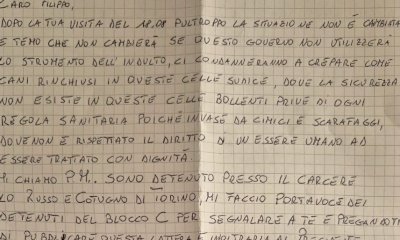 CARO FILIPPO,
DOPO LA TUA VISITA DEL 18.08 PULTROPPO LA SITUAZIONE NON È CAMBIATA
E TEMO CHE NON CAMBIERÀ SE QUESTO GOVERNO NON UTILIZZERÀ
LO STRUMENTO DELL'INDULTO, CI CONDANNERANNO A CREPARE COME
CANI RINCHIUSI IN QUESTE CELLE SUDICE, DOVE LA SICUREZZA
NON ESISTE IN QUESTE CELLE BOLLENTI PRIVE DI OGNI
REGOLA SANITARIA POICHÈ INVASE DA CIMICI E SCARAFAGGI,
DOVE NON È RISPETTATO IL DIRITTO DI UN ESSERE UMANO AD
ESSERE TRATTATO CON DIGNITÀ.
MI CHIAMO P.M.. SONO DETENUTO PRESSO IL CARCERE
LO RUSSO E COTUGNO DI TORINO, MI FACCIO PORTAVOCE DEI
DETENUTI DEL BLOCCO C PER SEGNALARE A TE E PREGANDOTI
DI PUBBLICARE QUESTA LETTERA E INOLTRARLA AI